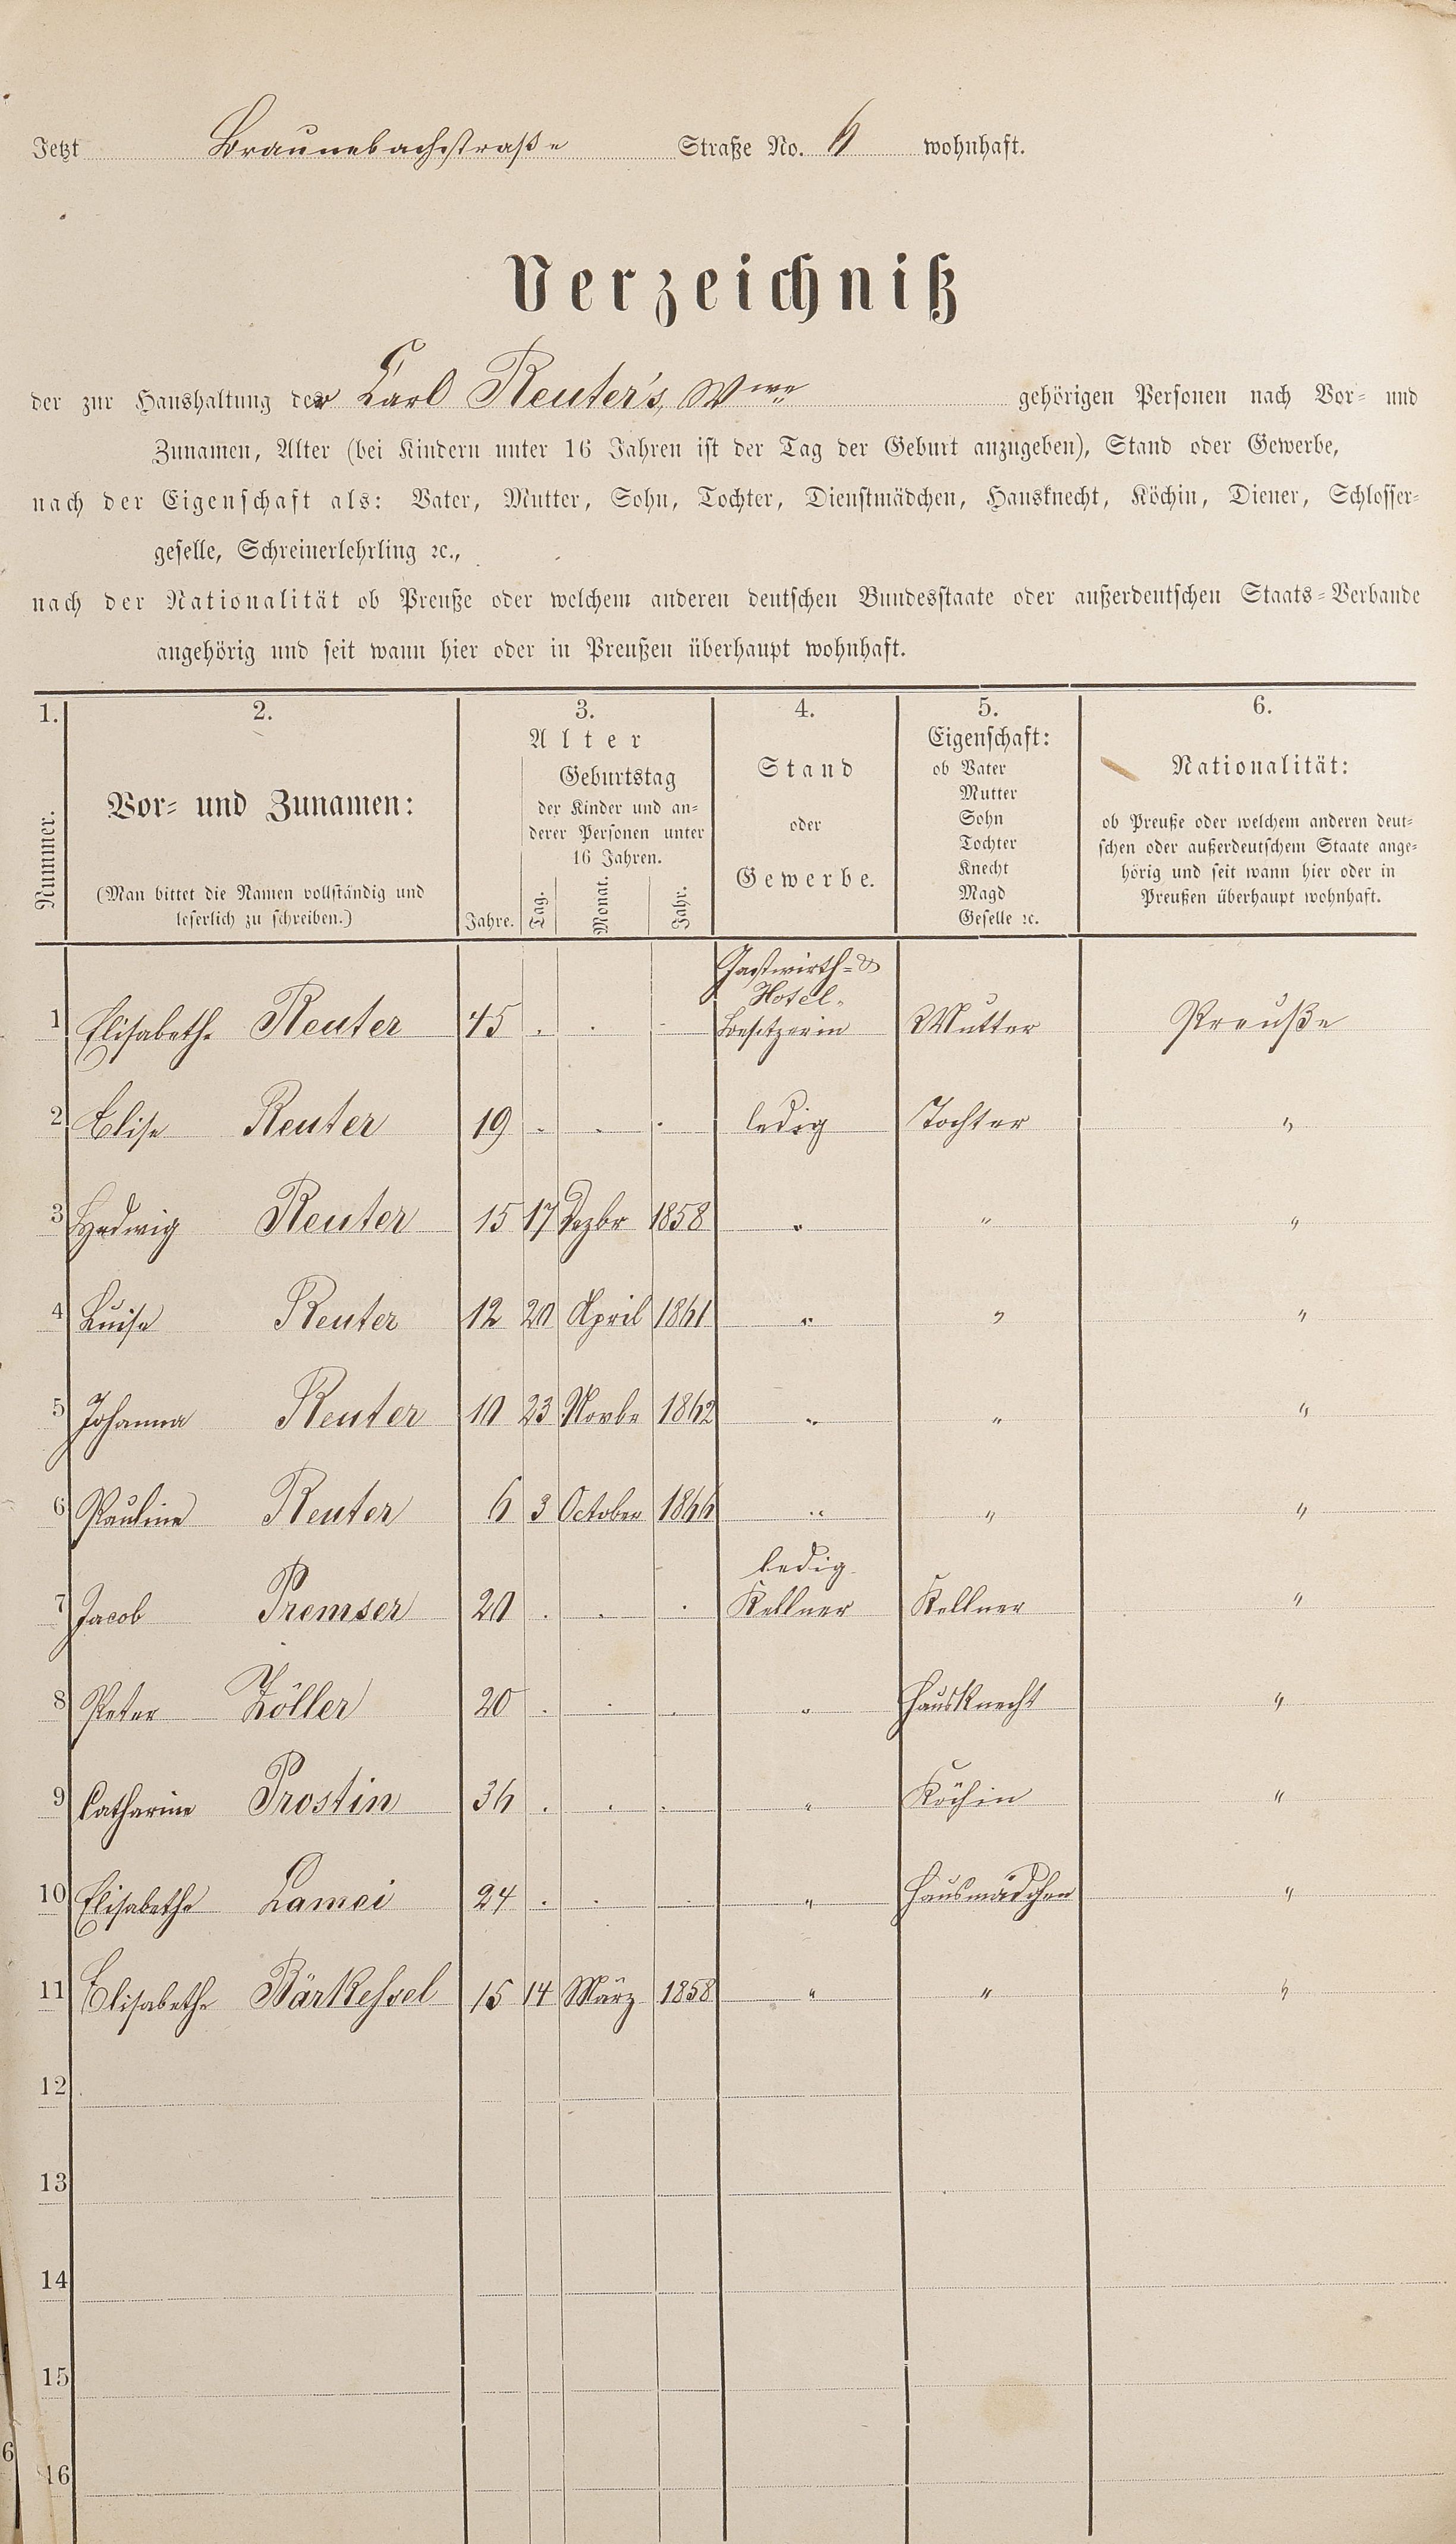 Jetzt Braunebachstraße Straße No. 6 wohnhaft.
Verzeichniß
der zur Haushaltung der Carl Reuter's Wwe gehörigen Personen nach Vor- und
Zunamen, Alter (bei Kindern unter 16 Jahren ist der Tag der Geburt anzugeben), Stand oder Gewerbe,
nach der Eigenschaft als: Vater, Mutter, Sohn, Tochter, Dienstmädchen, Hausknecht, Köchin, Diener, Schlosser-
geselle, Schreinerlehrling ꝛc.,
nach der Nationalität ob Preuße oder welchem anderen deutschen Bundesstaate oder außerdeutschen Staats-Verbande
angehörig und seit wann hier oder in Preußen überhaupt wohnhaft.
1. 2. 3. 4. 5. 6.
Nummer.
Vor- und Zunamen:
(Man bittet die Namen vollständig und
leserlich zu schreiben.)
Alter
Jahre.
Geburtstag
der Kinder und an-
derer Personen unter
16 Jahren.
Tag. Monat. Jahr.
Stand
oder
Gewerbe.
Eigenschaft:
ob Vater
Mutter
Sohn
Tochter
Knecht
Magd
Geselle ꝛc.
Nationalität:
ob Preuße oder welchem anderen deut-
schen oder außerdeutschem Staate ange-
hörig und seit wann hier oder in
Preußen überhaupt wohnhaft.
Gastwirth- &
Hotel-
1 Elisabethe Reuter 45 . . . Besitzerin Mutter Preuße
2 Elise Reuter 19 . . . ledig Tochter "
3 Hedwig Reuter 15 17 Dezbr 1858 " " "
4 Luise Reuter 12 20 April 1861 " " "
5 Johanna Reuter 10 23 Novbr 1862 " " "
6 Pauline Reuter 6 3 October 1866 " " "
ledig
7 Jacob Premser 20 . . . Kellner Kellner "
8 Peter Zöller 20 . . . " Hausknecht "
9 Catharine Prostin 36 . . . " Köchin "
10 Elisabethe Lamei 24 . . . " Hausmädchen "
11 Elisabethe Bärkessel 15 14 März 1858 " " "
12
13
14
15
16
6